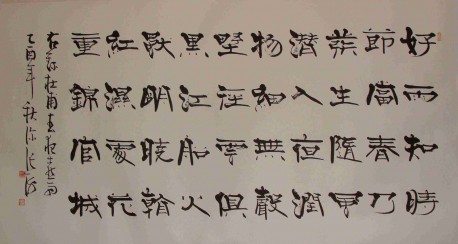 好雨知時
節當春乃
發生隨風
潛入夜潤
物細無聲
野徑雲俱
黑江船火
獨明曉看
紅濕處花
重錦官城
右錄杜甫春夜喜雨
乙酉年秋